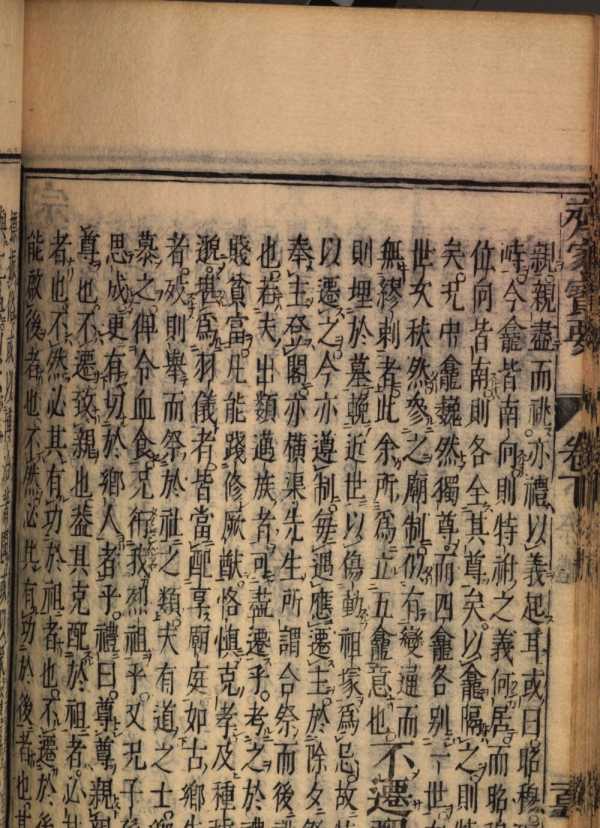 齊家寶要
卷下
親親盡而祧亦禮以義起耳或曰昭穆
峙今龕皆南向則特祔之義何居而昭
位向皆南則各全其尊矣以龕隔之則特
矣九中龕巍然獨尊而四龕各別一世
世次秩然參之廟制仍有變通而
無繆剌者此余所爲立五龕意也 不遷
則埋於墓輓近世以傷動祖塚爲忌故
以遷之今亦遵制毎遇應遷主於除夕祭
奉主登閣亦橫渠先生所謂合祭而後
也若夫出類邁族者可葢遷乎考之於禮
賤貧富凡能踐修厥猷恪愼克孝及種
邈世爲羽儀者皆當配享廟庭如古鄉
者歿則舉而祭於社之類夫有道之士
慕之俾令血食况衎我烈祖乎又況子
思成更有切於鄉人者乎禮曰尊尊親
尊也不遷致親也葢其克配於祖者必
者也不然必其有功於祖者也不遷於後
能啟後者也不然必其有功於後者也其